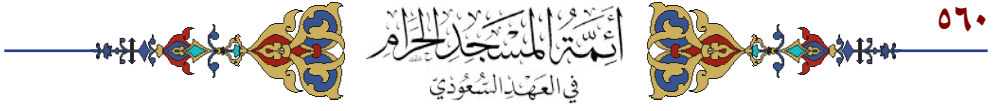 ٥٦٠
أَئِمَّةُ المَسْجِدِ الحَرَامِ
في العَهْدِ السُّعُودِيّ